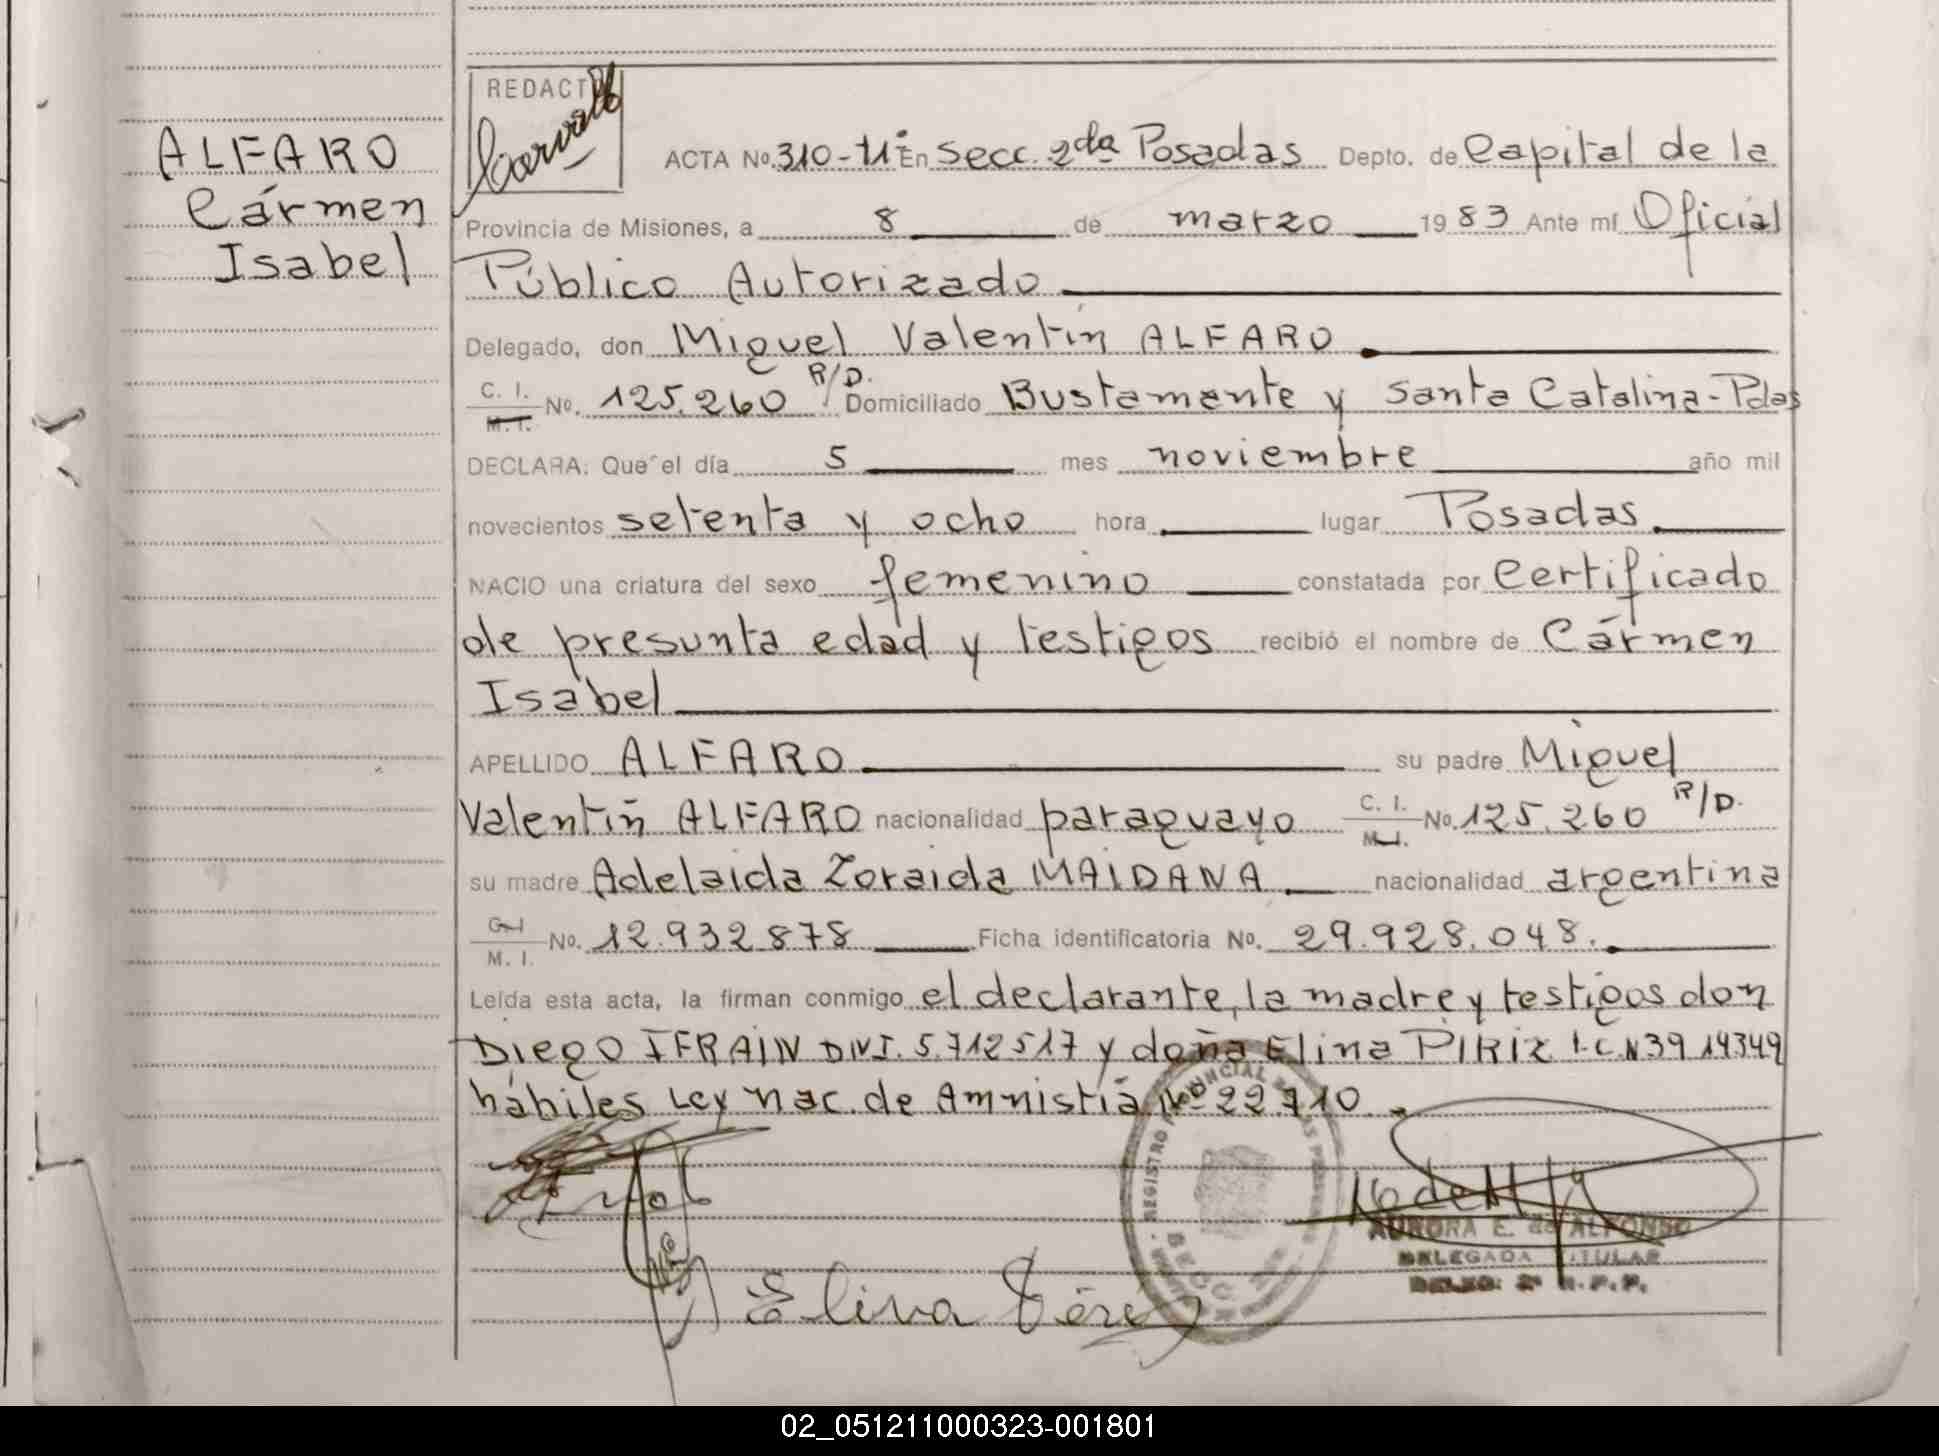 ALFARO
Cármen
Isabel
REDACT
ACTA No. 310-11ª En Secc. 2da Posadas Depto. de Capital de la
Provincia de Misiones, a 8 de marzo 1983 Ante mí Oficial
Público Autorizado
Delegado, don Miguel Valentín ALFARO
C. I. M. I. No. 125.260 R/D. Domiciliado Bustamante y Santa Catalina-Pdas
DECLARA: Que el día 5 mes noviembre año mil
novecientos setenta y ocho hora lugar Posadas
NACIO una criatura del sexo femenino constatada por Certificado
de presunta edad y testigos recibió el nombre de Cármen
Isabel
APELLIDO ALFARO su padre Miguel
Valentín ALFARO nacionalidad paraguayo C. I. M. I. No. 125.260 R/D.
su madre Adelaida Zoraida MAIDANA nacionalidad argentina
C. I. M. I. No. 12.932878 Ficha identificatoria No. 29.928.048.
Leída esta acta, la firman conmigo el declarante, la madre y testigos don
Diego IFRAIN DNI. 5.712517 y doña Elina PIRIZ L.C.N 3919349
hábiles Ley Nac. de Amnistía Nº 22.710.
REGISTRO PROVINCIAL DE LAS PERSONAS
SECC
AURORA E. de ALFONSO
DELEGADA TITULAR
DELEG. 2ª R.P.P.
Elina
02_051211000323-001801